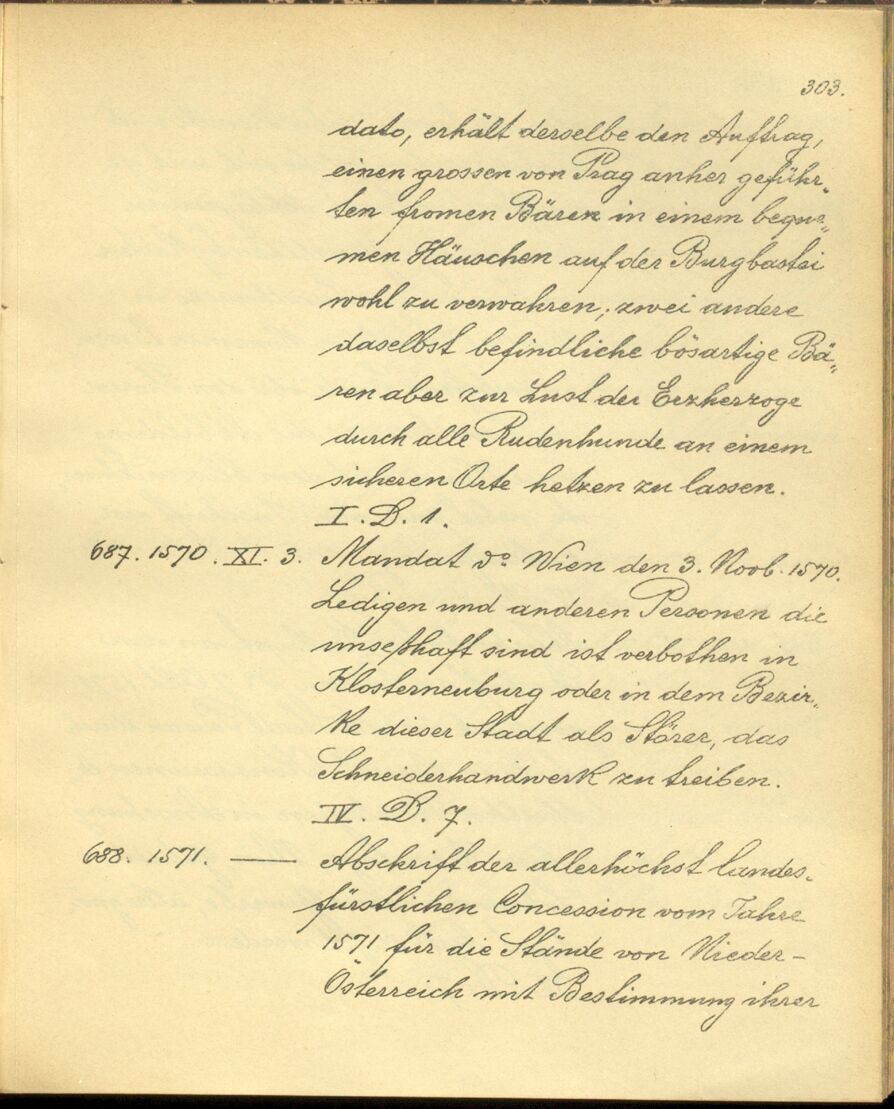 303.
dato, erhält derselbe den Auftrag,
einen grossen von Prag anher geführ„
ten fromen Bären in einem beque„
men Häuschen auf der Burgbastei
wohl zu verwahren; zwei andere
daselbst befindliche bösartige Bä„
ren aber zur Lust der Erzherzoge
durch alle Rudenhunde an einem
sicheren Orte hetzen zu lassen.
I. D. 1.
687. 1570. XI. 3. Mandat dº Wien den 3. Novb. 1570.
Ledigen und anderen Personen die
unseßhaft sind ist verbothen in
Klosterneuburg oder in dem Bezir„
ke dieser Stadt als Störer, das
Schneiderhandwerk zu treiben.
IV. D. 7.
688. 1571. — Abschrift der allerhöchst landes„
fürstlichen Concession vom Jahre
1571 für die Stände von Nieder-
Österreich mit Bestimmung ihrer